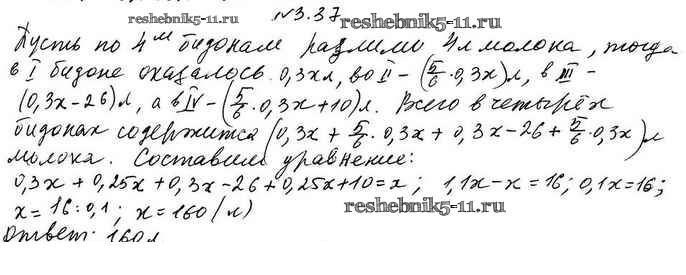 №3.37 reshebnik5-11.ru
Пусть по 4м бидонам разлили 4л молока, тогда
в I бидоне оказалось 0,3хл, во II – (5/6·0,3х)л, в III –
(0,3х-26)л, а в IV – (5/6·0,3х+10)л. Всего в четырёх
бидонах содержится (0,3х + 5/6·0,3х + 0,3х-26 + 5/6·0,3х)л
молока. Составим уравнение:
0,3х + 0,25х + 0,3х-26 + 0,25х+10=х; 1,1х-х=16; 0,1х=16;
х=16:0,1; х=160(л) reshebnik5-11.ru
Ответ: 160л